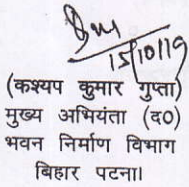 15/10/19
(कश्यप कुमार गुप्ता)
मुख्य अभियंता (द०)
भवन निर्माण विभाग
बिहार पटना।